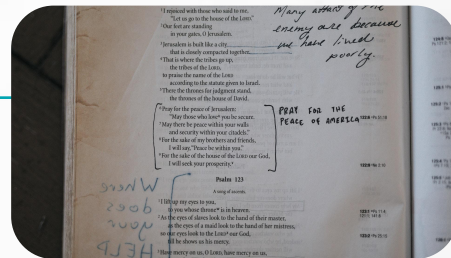 ¹I rejoiced with those who said to me,
"Let us go to the house of the LORD."
²Our feet are standing
in your gates, O Jerusalem.
³Jerusalem is built like a city
that is closely compacted together.
⁴That is where the tribes go up,
the tribes of the LORD,
to praise the name of the LORD
according to the statute given to Israel.
⁵There the thrones for judgment stand,
the thrones of the house of David.
⁶Pray for the peace of Jerusalem:
"May those who love you be secure.
⁷May there be peace within your walls
and security within your citadels."
⁸For the sake of my brothers and friends,
I will say, "Peace be within you."
⁹For the sake of the house of the LORD our God,
I will seek your prosperity.
Psalm 123
A song of ascents.
¹I lift up my eyes to you,
to you whose throne is in heaven.
²As the eyes of slaves look to the hand of their master,
as the eyes of a maid look to the hand of her mistress,
so our eyes look to the LORD our God,
till he shows us his mercy.
³Have mercy on us, O LORD, have mercy on us,
Many attacks of the
enemy are because
we have lived
poorly.
PRAY FOR THE
PEACE OF AMERICA
Where
does
your
HELP